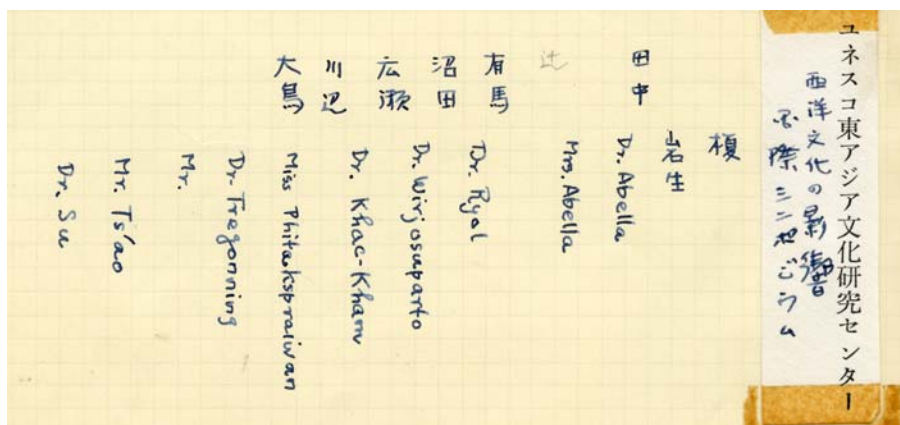 ユネスコ東アジア文化研究センター
西洋文化の影響
国際シンポジウム
榎
岩生
田中
Dr. Abella
辻
Mrs. Abella
有馬
Dr. Ryol
沼田
Dr. Wirjosuparto
広瀬
Dr. Khac-Kham
川辺
大鳥
Miss Phitakspraiwan
Dr. Tregonning
Mr.
Mr. Ts'ao
Dr. Su